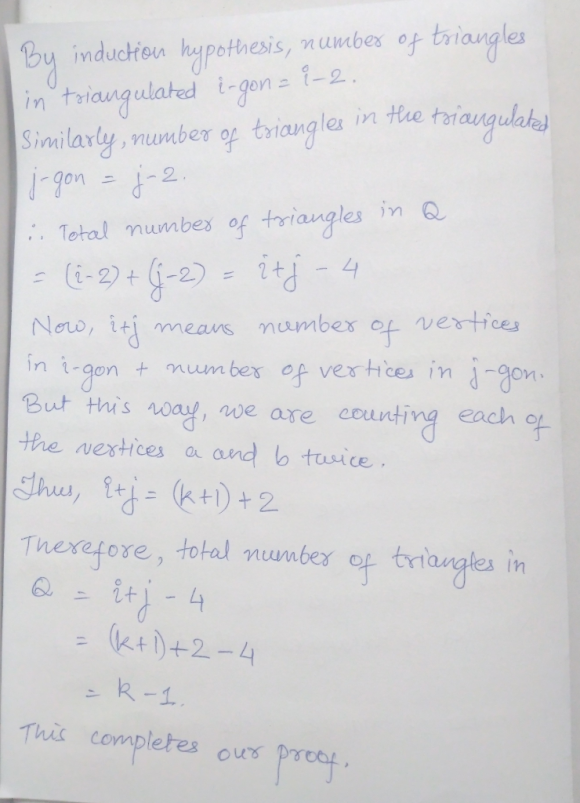 By induction hypothesis, number of triangles
in triangulated i-gon = i-2.
Similarly, number of triangles in the triangulated
j-gon = j-2.
∴ Total number of triangles in Q
= (i-2) + (j-2) = i+j - 4
Now, i+j means number of vertices
in i-gon + number of vertices in j-gon.
But this way, we are counting each of
the vertices a and b twice.
Thus, i+j = (k+1) + 2
Therefore, total number of triangles in
Q = i+j - 4
= (k+1)+2-4
= k-1.
This completes our proof.